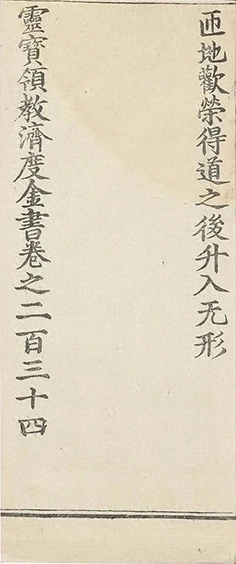 匝地歡榮得道之後升入无形
靈寶領教濟度金書卷之二百三十四